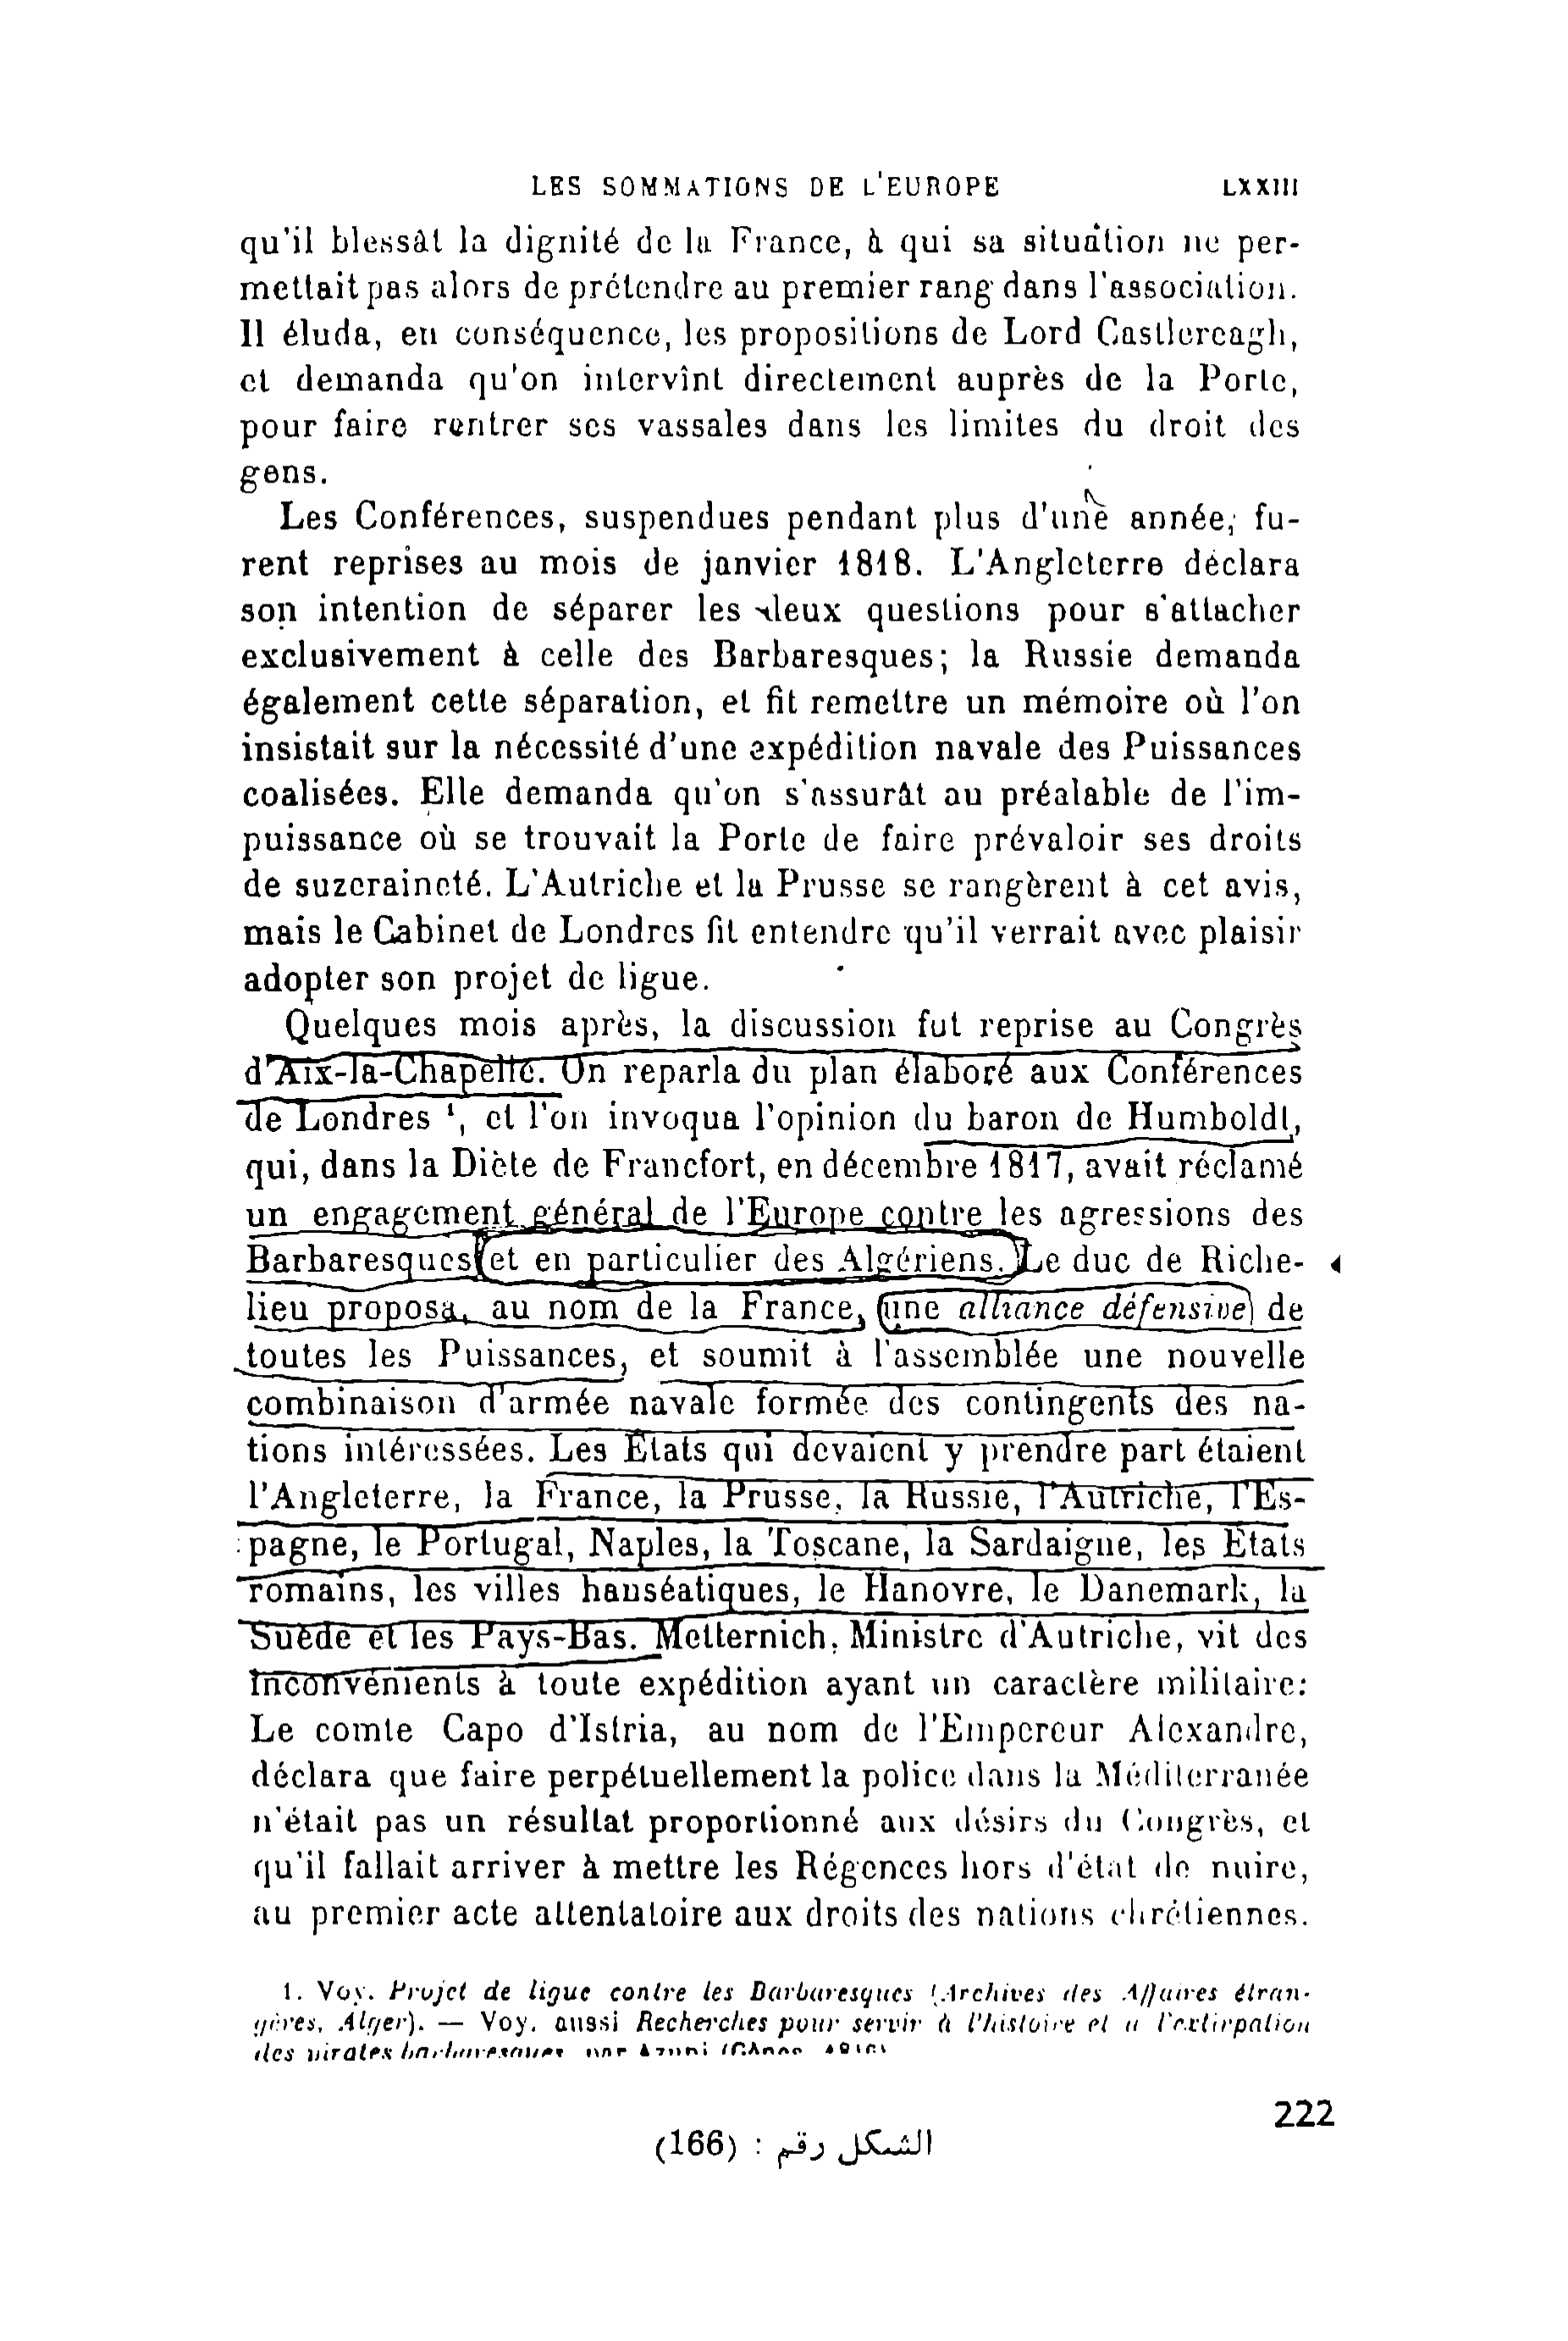 LES SOMMATIONS DE L'EUROPE LXXIII
qu'il blessât la dignité de la France, à qui sa situation ne per-
mettait pas alors de prétendre au premier rang dans l'association.
Il éluda, en conséquence, les propositions de Lord Castlereagh,
et demanda qu'on intervînt directement auprès de la Porte,
pour faire rentrer ses vassales dans les limites du droit des
gens.
Les Conférences, suspendues pendant plus d'une année, fu-
rent reprises au mois de janvier 1818. L'Angleterre déclara
son intention de séparer les deux questions pour s'attacher
exclusivement à celle des Barbaresques; la Russie demanda
également cette séparation, et fit remettre un mémoire où l'on
insistait sur la nécessité d'une expédition navale des Puissances
coalisées. Elle demanda qu'on s'assurât au préalable de l'im-
puissance où se trouvait la Porte de faire prévaloir ses droits
de suzeraineté. L'Autriche et la Prusse se rangèrent à cet avis,
mais le Cabinet de Londres fit entendre qu'il verrait avec plaisir
adopter son projet de ligue.
Quelques mois après, la discussion fut reprise au Congrès
d'Aix-la-Chapelle. On reparla du plan élaboré aux Conférences
de Londres ¹, et l'on invoqua l'opinion du baron de Humboldt,
qui, dans la Diète de Francfort, en décembre 1817, avait réclamé
un engagement général de l'Europe contre les agressions des
Barbaresques et en particulier des Algériens. Le duc de Riche-
lieu proposa, au nom de la France, une alliance défensive de
toutes les Puissances, et soumit à l'assemblée une nouvelle
combinaison d'armée navale formée des contingents des na-
tions intéressées. Les États qui devaient y prendre part étaient
l'Angleterre, la France, la Prusse, la Russie, l'Autriche, l'Es-
pagne, le Portugal, Naples, la Toscane, la Sardaigne, les Etats
romains, les villes hanséatiques, le Hanovre, le Danemark, la
Suède et les Pays-Bas. Metternich, Ministre d'Autriche, vit des
inconvénients à toute expédition ayant un caractère militaire:
Le comte Capo d'Istria, au nom de l'Empereur Alexandre,
déclara que faire perpétuellement la police dans la Méditerranée
n'était pas un résultat proportionné aux désirs du Congrès, et
qu'il fallait arriver à mettre les Régences hors d'état de nuire,
au premier acte attentatoire aux droits des nations chrétiennes.
1. Voy. Projet de ligue contre les Barbaresques (Archives des Affaires étran-
gères, Alger). — Voy. aussi Recherches pour servir à l'histoire et à l'extirpation
des pirates barbaresques par Azuni
222
الشكل رقم : (166)